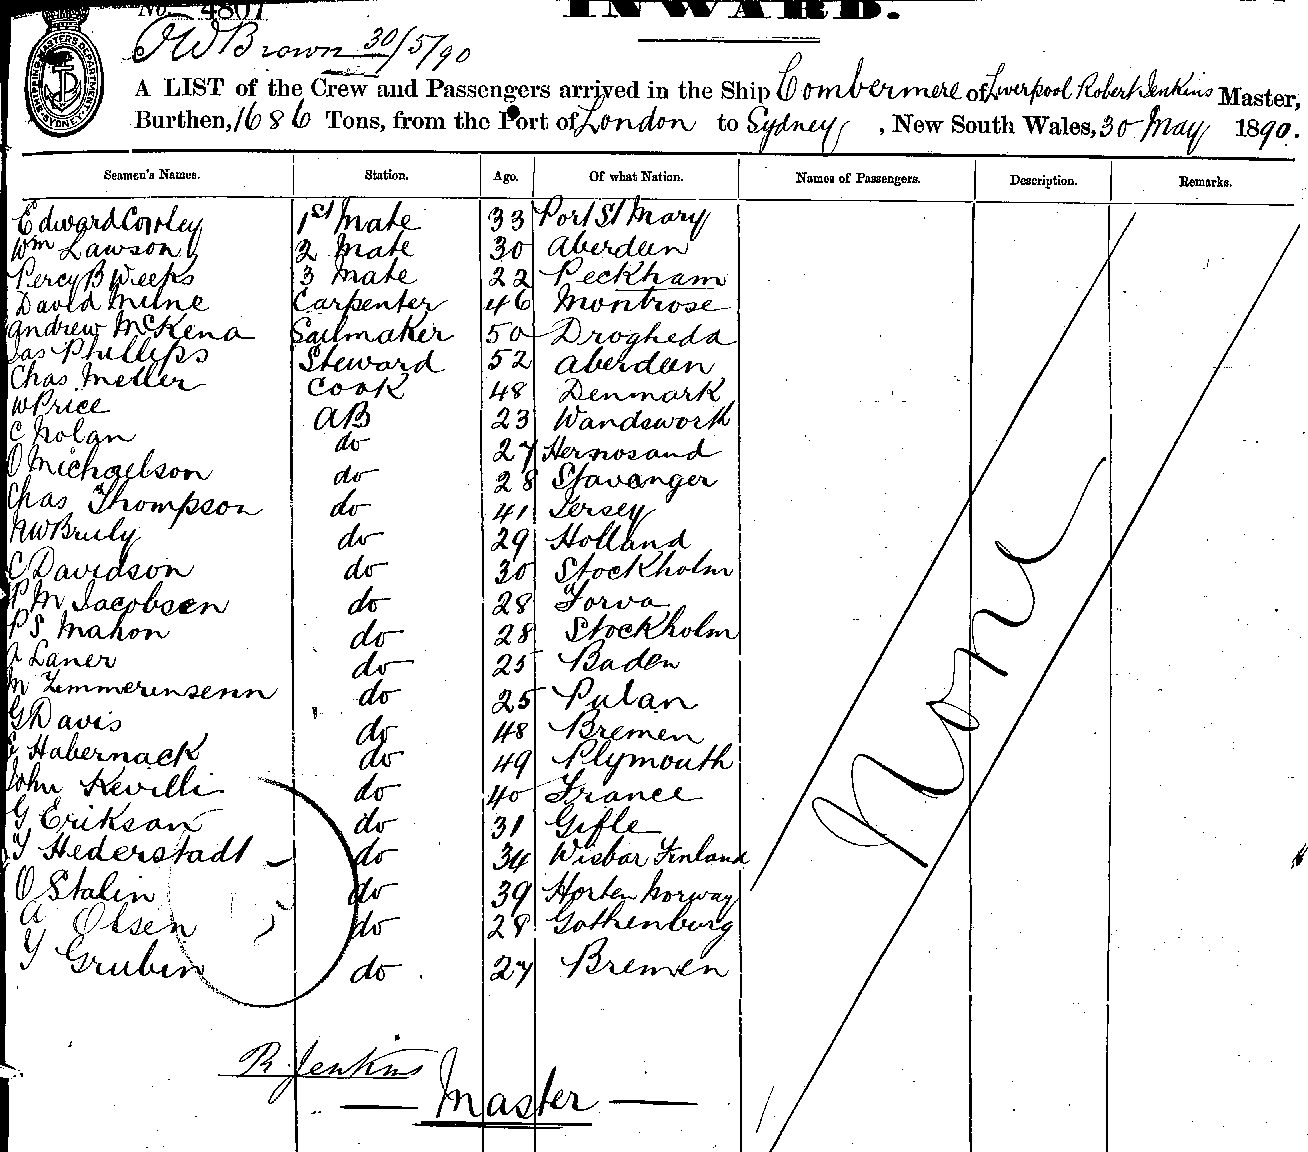 No. 4807
INWARD.
J W Brown 30/5/90
SHIPPING MASTER'S DEPARTMENT SYDNEY
A LIST of the Crew and Passengers arrived in the Ship Combermere of Liverpool Robert Jenkins Master,
Burthen, 1686 Tons, from the Port of London to Sydney, New South Wales, 30 May 1890.
Seamen's Names. Station. Age. Of what Nation. Names of Passengers. Description. Remarks.
Edward Cowley 1st Mate 33 Port St Mary
Wm Lawson 2 Mate 30 Aberdeen
Percy B Weeks 3 Mate 22 Peckham
David Milne Carpenter 46 Montrose
Andrew McKena Sailmaker 50 Drogheda
Jas Phillips Steward 52 Aberdeen
Chas Meller Cook 48 Denmark
W Price AB 23 Wandsworth
C Nolan do 27 Hernosand
O Michaelson do 28 Stavanger
Chas Thompson do 41 Jersey
N W Bruly do 29 Holland
C Davidson do 30 Stockholm
P M Jacobsen do 28 Torva
P S Mahon do 28 Stockholm
A Laner do 25 Baden
M Zimmerensenn do 25 Pulan
G Davis do 48 Bremen
Habernack do 49 Plymouth
John Kevilli do 40 France
G Erikson do 31 Gifle
Hederstadt do 34 Wisbar Finland
O Stalin do 39 Horten Norway
A Olsen do 28 Gothenburg
Grubin do 27 Bremen
None
R. Jenkins
Master